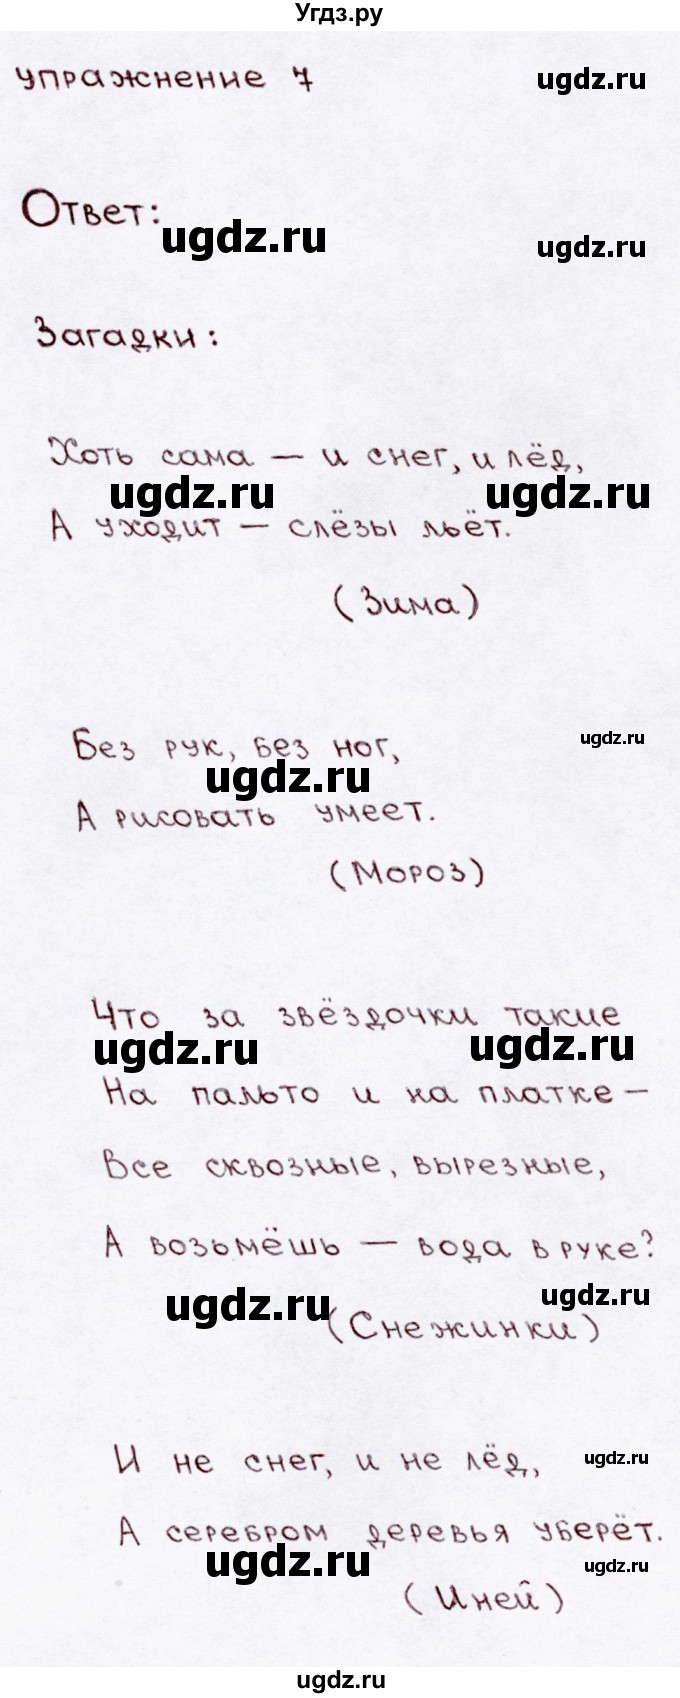 Угдз.ру
упражнение 7
ugdz.ru
Ответ:
ugdz.ru
ugdz.ru
Загадки:
Хоть сама – и снег, и лёд,
ugdz.ru
ugdz.ru
А уходит – слёзы льёт.
(Зима)
Без рук, без ног,
ugdz.ru
ugdz.ru
А рисовать умеет.
(Мороз)
Что за звёздочки такие
ugdz.ru
ugdz.ru
На пальто и на платке –
Все сквозные, вырезные,
А возьмёшь – вода в руке?
ugdz.ru
ugdz.ru
(Снежинки)
И не снег, и не лёд,
ugdz.ru
А серебром деревья уберёт.
ugdz.ru
ugdz.ru
(Иней)
ugdz.ru